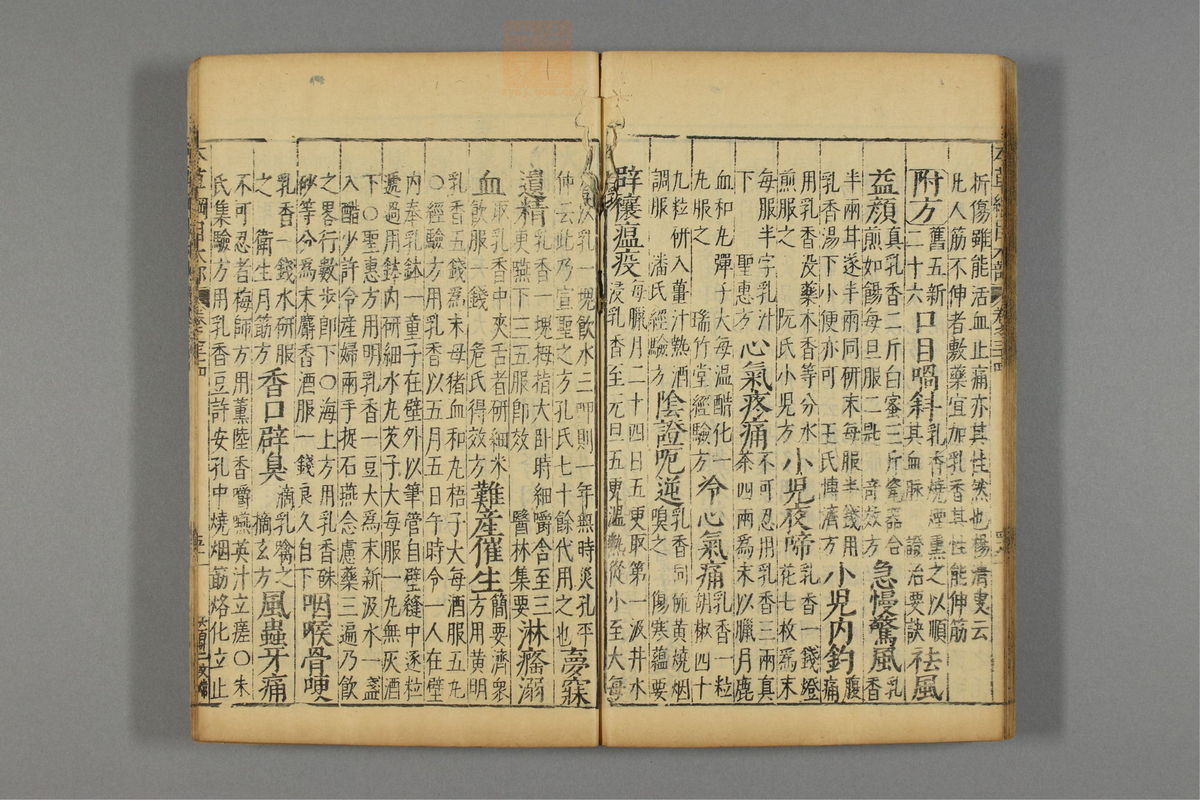 折傷雖能活血止痛亦其性然也楊清叟云
凡人筋不伸者敷藥宜加乳香其性能伸筋
附方舊五新二十六 口目喎斜乳香燒煙熏之以順其血脈 證治要訣 祛風
益顔真乳香二斤白蜜三斤瓷器合煎如餳每旦服二匙 奇效方 急慢驚風乳香
半兩甘遂半兩同研末每服半錢用乳香湯下小便亦可 王氏博濟方 小兒内釣腹痛
用乳香没藥木香等分水煎服之 阮氏小兒方 小兒夜啼乳香一錢燈花七枚爲末
每服半字乳汁下 聖惠方 心氣疼痛不可忍用乳香三兩真茶四兩爲末以臘月鹿
血和丸彈子大每溫醋化一丸服之 瑞竹堂經驗方 冷心氣痛乳香一粒胡椒四十
九粒研入薑汁熱酒調服 潘氏經驗方 陰證呃逆乳香同硫黄燒烟嗅之 傷寒蘊要
辟穰瘟疫每臘月二十四日五更取第一汲井水浸乳香至元旦五更溫熱從小至大每
乳一塊飲水三呷則一年無時災孔平仲云此乃宣聖之方孔氏七十餘代用之也 夢寐
遺精乳香一塊拇指大卧時細嚼含至三更嚥下三五服即效 醫林集要 淋癃溺
血取乳香中夾石者研細米飲服一錢 危氏得效方 難産催生簡要濟衆方用黄明
乳香五錢爲末母猪血和丸梧子大每酒服五丸○經驗方用乳香以五月五日午時令一人在壁
内奉乳鉢一童子在壁外以筆管自壁縫中逐粒遞過用鉢内研細水丸芡子大每服一丸無灰酒
下○聖惠方用明乳香一豆大爲末新汲水一盞入醋少許令産婦兩手捉石燕念慮藥三遍乃飲
之畧行數步即下○海上方用乳香硃砂等分爲末麝香酒服一錢良久自下 咽喉骨哽
乳香一錢水研服之 衛生月筋方 香口辟臭滴乳噙之 摘玄方 風蟲牙痛
不可忍者梅師方用薰陸香嚼嚥英汁立瘥○朱氏集驗方用乳香豆許安孔中燒烟筯烙化立止